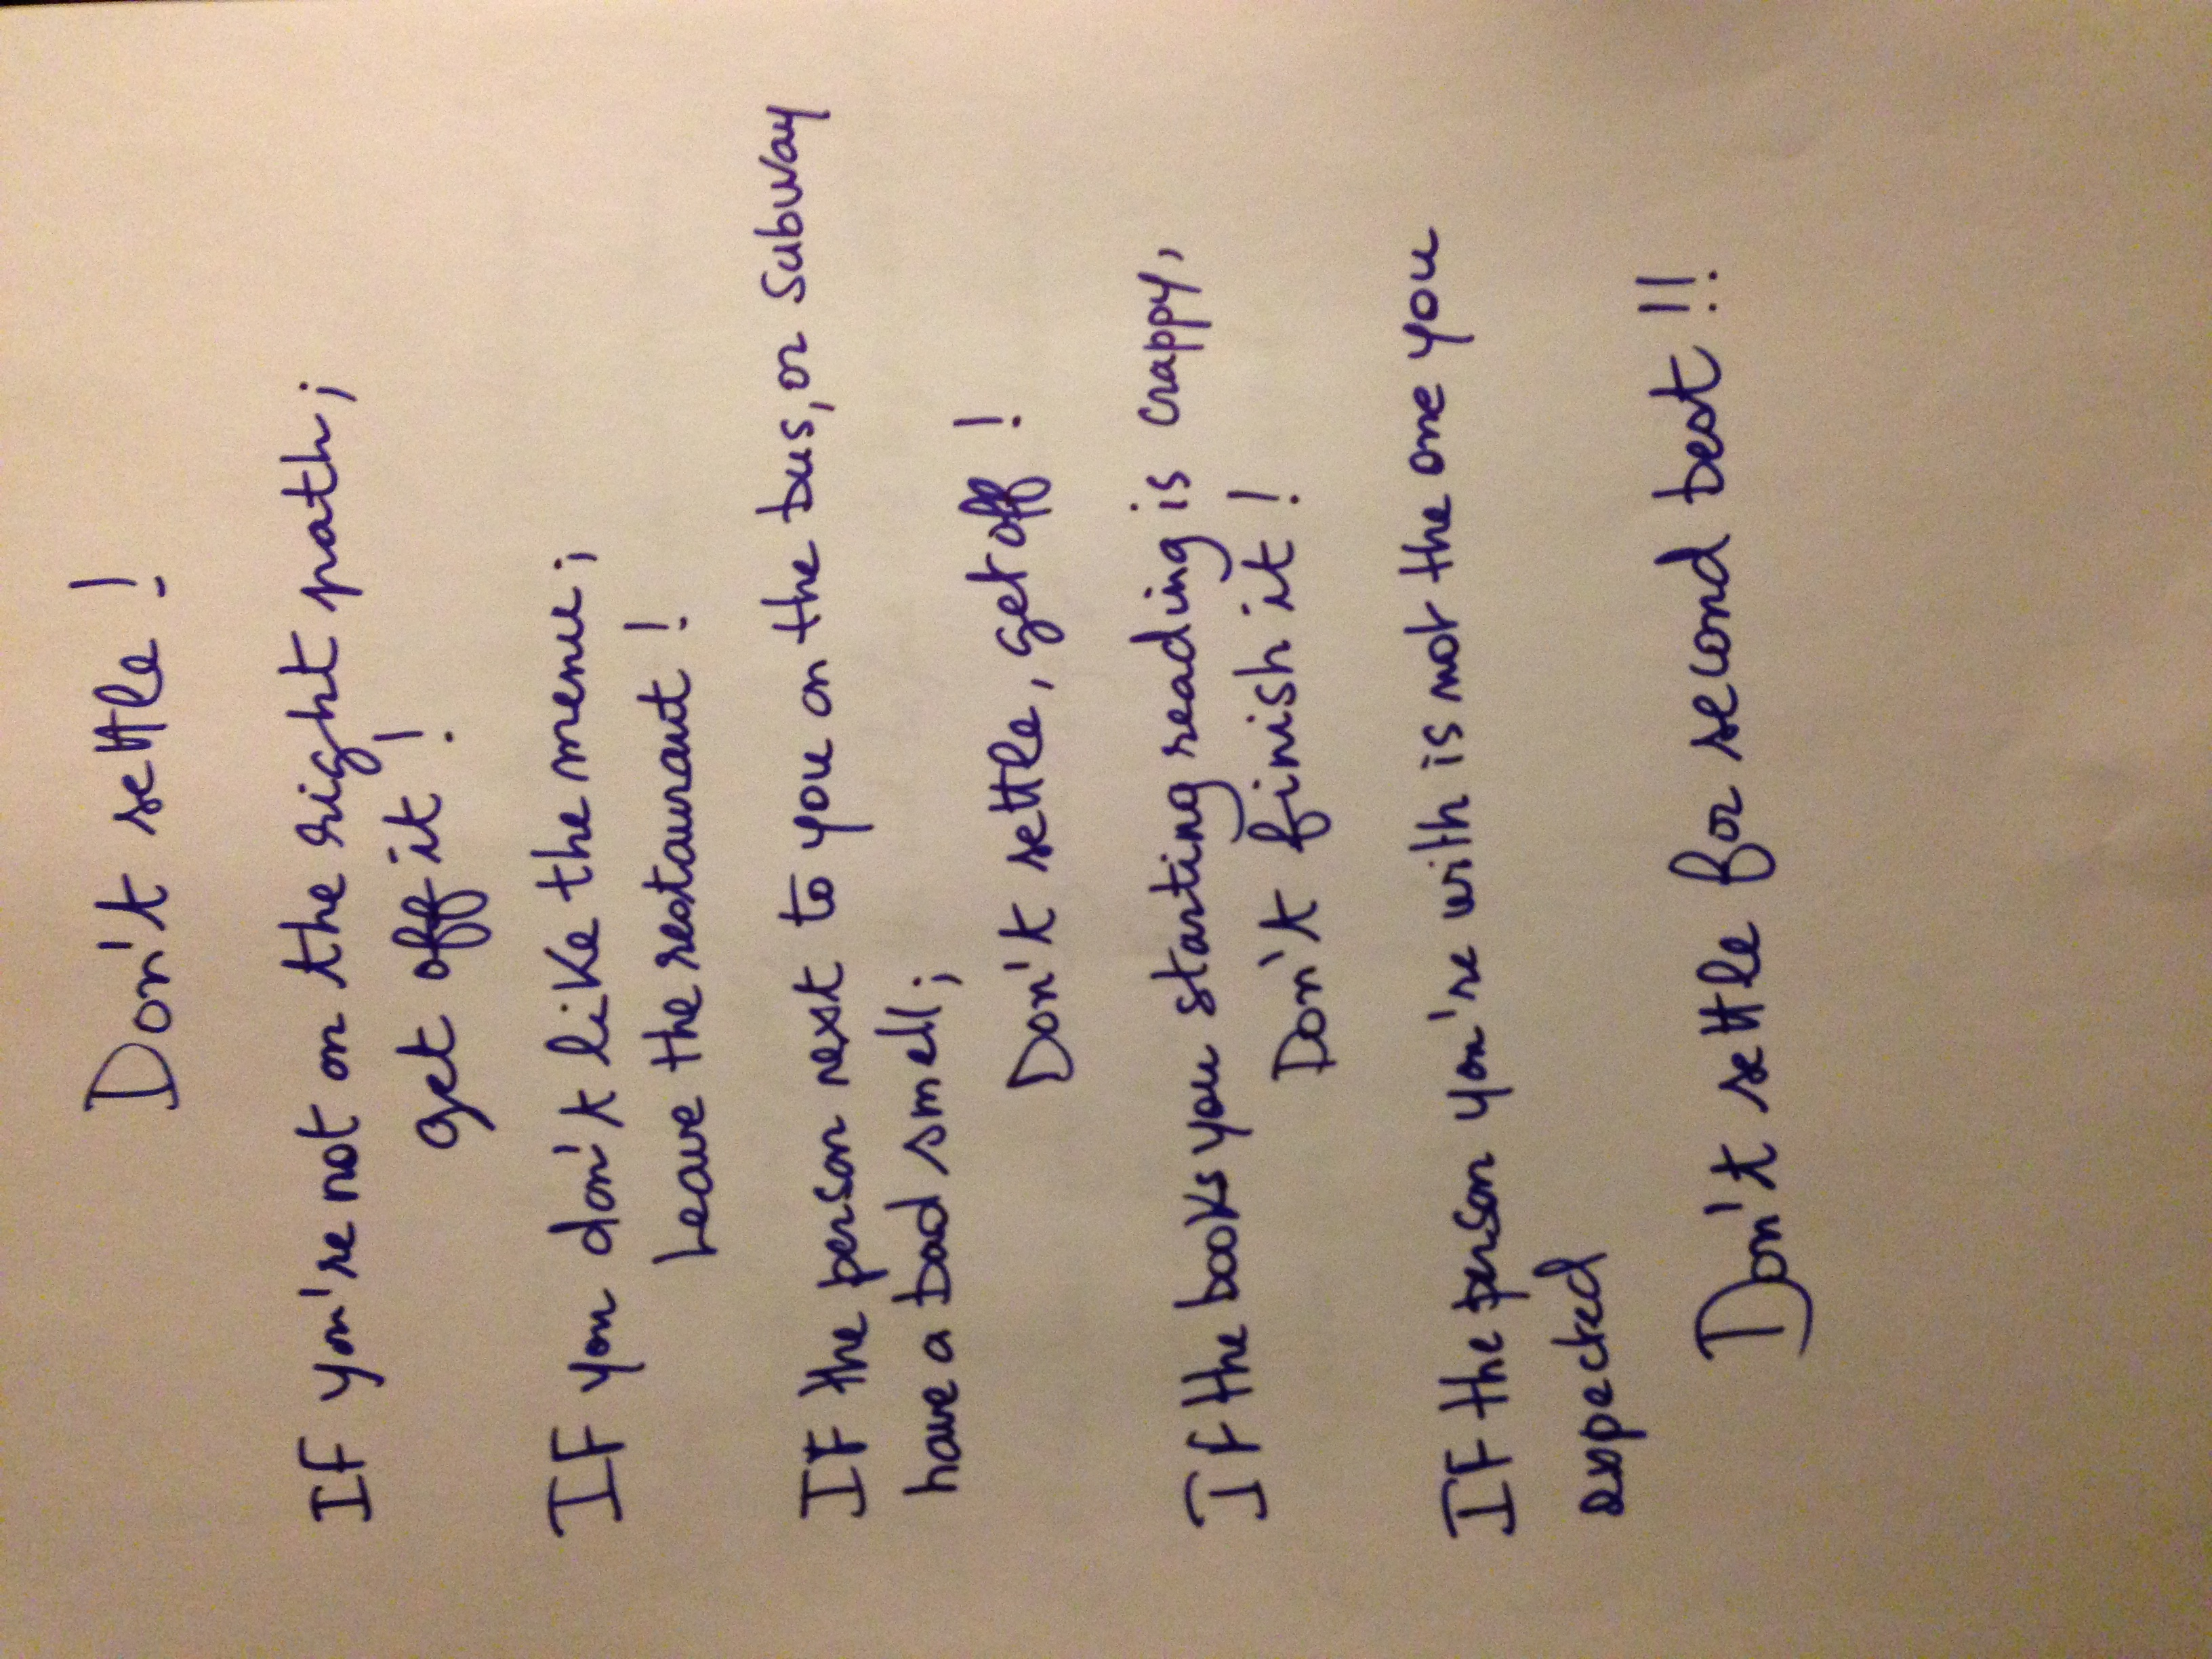 Don't settle!
If you're not on the right path;
get off it!
If you don't like the menu;
Leave the restaurant!
If the person next to you on the bus, or subway
have a bad smell;
Don't settle, get off!
If the books you starting reading is crappy,
Don't finish it!
If the person you're with is not the one you
expected
Don't settle for second best!!